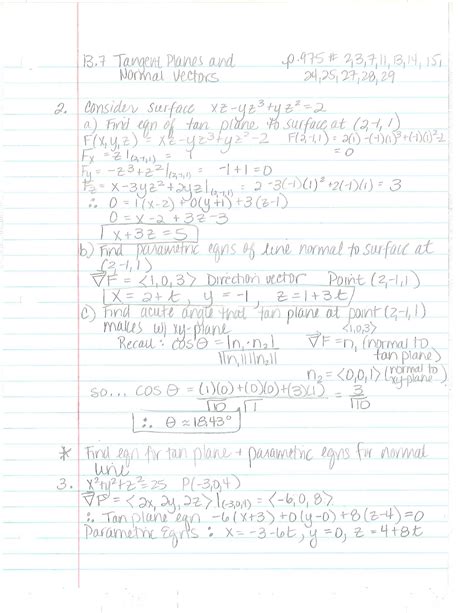 13.7 Tangent Planes and p.975 # 2,3,7,11,13,14,15,
Normal Vectors 24,25,27,28,29
2. Consider surface xz-yz³+yz²=2
a) Find eqn of tan plane to surface at (2,-1,1)
F(x,y,z) = xz-yz³+yz²-2 F(2,-1,1) = 2(1)-(-1)(1)³+(-1)(1)²-2
Fx = z|(2,-1,1) = 1 = 0
Fy = -z³+z²|(2,-1,1) = -1+1=0
Fz = x-3yz²+2yz|(2,-1,1) = 2-3(-1)(1)²+2(-1)(1) = 3
∴ 0 = 1(x-2)+0(y+1)+3(z-1)
0 = x-2+3z-3
x+3z=5
b) Find parametric eqns of line normal to surface at
(2,-1,1)
∇F = <1,0,3> Direction vector Point (2,-1,1)
x = 2+t, y = -1, z=1+3t
c) Find acute angle that tan plane at point (2,-1,1)
makes w/ xy-plane <1,0,3>
Recall: cosθ = |n₁·n₂| ∇F = n₁ (normal to
||n₁|| ||n₂|| tan plane)
n₂ = <0,0,1> (normal to
xy-plane)
so... cosθ = (1)(0)+(0)(0)+(3)(1) = 3
√10 √1 √10
∴ θ ≈ 18.43°
* Find eqn for tan plane + parametric eqns for normal
line
3. x²+y²+z²=25 P(-3,0,4)
∇F = <2x, 2y, 2z>|(-3,0,4) = <-6,0,8>
∴ Tan plane eqn -6(x+3)+0(y-0)+8(z-4)=0
Parametric Eqns: x=-3-6t, y=0, z=4+8t